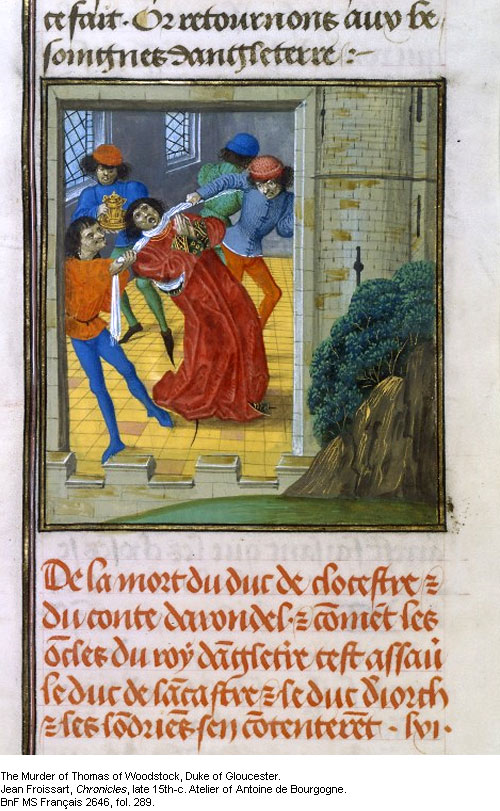 cefait. Or retournons aux be
soingnes dangleterre :~
De la mort du duc de clocestre ⁊
du conte darondel. ⁊ cõmẽt les
õcles du roy dãgletẽre cest assau᷑
le duc de lãcastre ⁊ le duc diorch
⁊ les lõdriẽs sen cõtenterẽt. lvi.
The Murder of Thomas of Woodstock, Duke of Gloucester.
Jean Froissart, Chronicles, late 15th-c. Atelier of Antoine de Bourgogne.
BnF MS Français 2646, fol. 289.